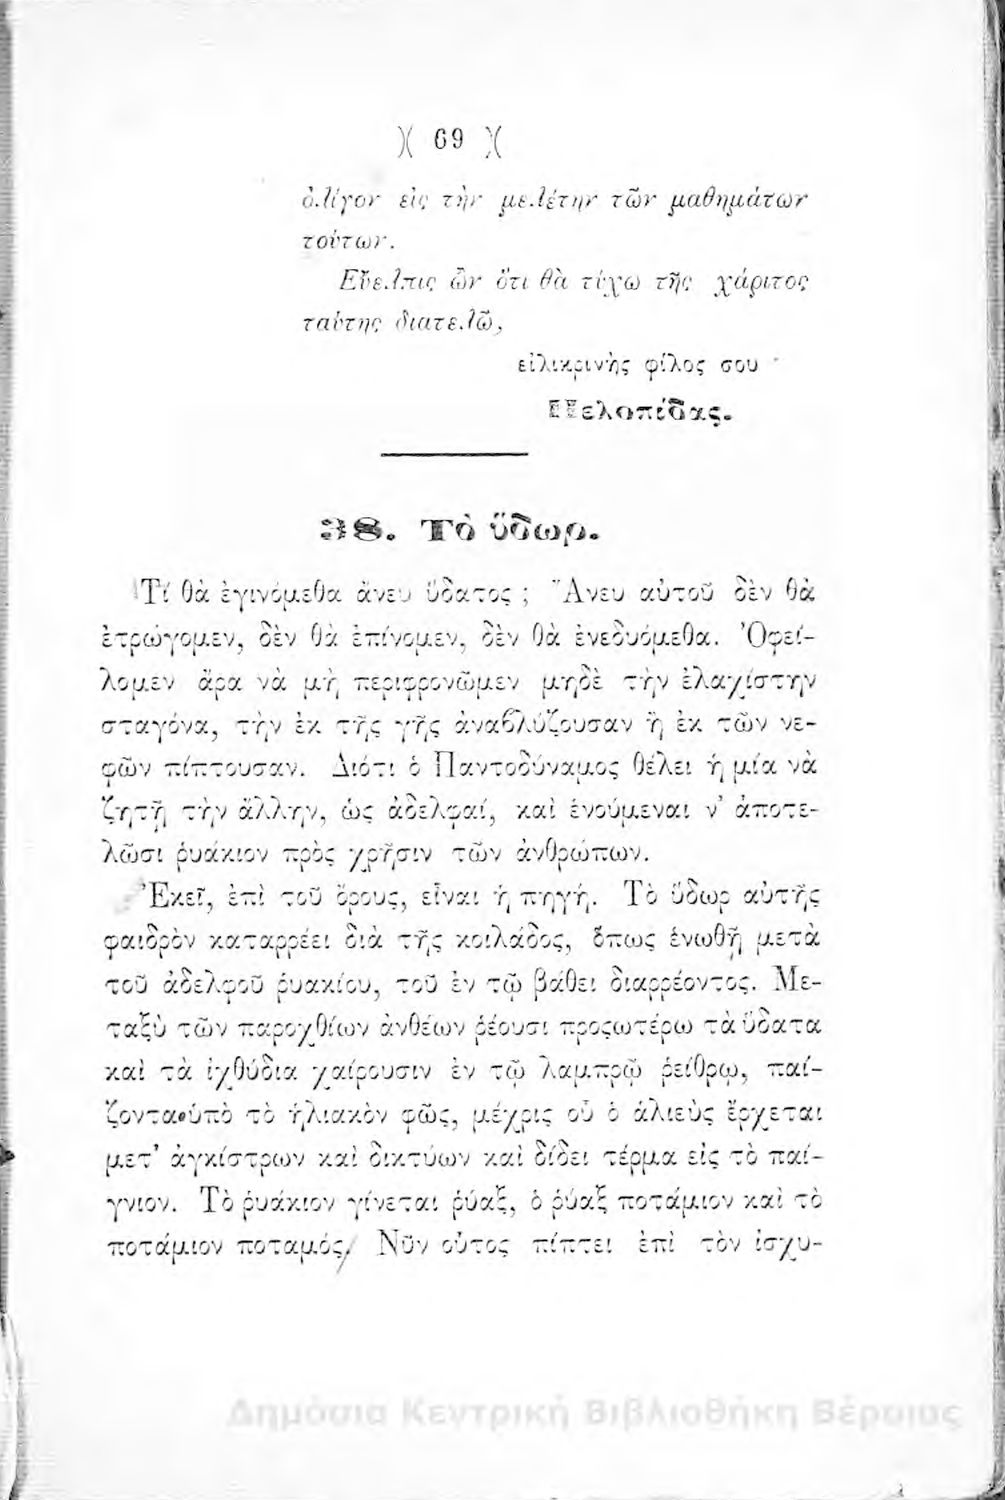 )( 69 )(
ὀλίγον εἰς τὴν μελέτην τῶν μαθημάτων
τούτων.
Εὔελπις ὢν ὅτι θὰ τύχω τῆς χάριτος
ταύτης διατελῶ,
εἰλικρινὴς φίλος σου
Πελοπίδας.
38. Τὸ ὕδωρ.
Τί θὰ ἐγινόμεθα ἄνευ ὕδατος ; Ἄνευ αὐτοῦ δὲν θὰ
ἐτρώγομεν, δὲν θὰ ἐπίνομεν, δὲν θὰ ἐνεδυόμεθα. Ὀφεί-
λομεν ἄρα νὰ μὴ περιφρονῶμεν μηδὲ τὴν ἐλαχίστην
σταγόνα, τὴν ἐκ τῆς γῆς ἀναβλύζουσαν ἢ ἐκ τῶν νε-
φῶν πίπτουσαν. Διότι ὁ Παντοδύναμος θέλει ἡ μία νὰ
ζητῇ τὴν ἄλλην, ὡς ἀδελφαί, καὶ ἑνούμεναι ν' ἀποτε-
λῶσι ῥυάκιον πρὸς χρῆσιν τῶν ἀνθρώπων.
Ἐκεῖ, ἐπὶ τοῦ ὄρους, εἶναι ἡ πηγή. Τὸ ὕδωρ αὐτῆς
φαιδρὸν καταρρέει διὰ τῆς κοιλάδος, ὅπως ἑνωθῇ μετὰ
τοῦ ἀδελφοῦ ῥυακίου, τοῦ ἐν τῷ βάθει διαρρέοντος. Με-
ταξὺ τῶν παροχθίων ἀνθέων ῥέουσι προςωτέρω τὰ ὕδατα
καὶ τὰ ἰχθύδια χαίρουσιν ἐν τῷ λαμπρῷ ῥείθρῳ, παί-
ζοντα ὑπὸ τὸ ἡλιακὸν φῶς, μέχρις οὗ ὁ ἁλιεὺς ἔρχεται
μετ' ἀγκίστρων καὶ δικτύων καὶ δίδει τέρμα εἰς τὸ παί-
γνιον. Τὸ ῥυάκιον γίνεται ῥύαξ, ὁ ῥύαξ ποτάμιον καὶ τὸ
ποτάμιον ποταμός. Νῦν οὗτος πίπτει ἐπὶ τὸν ἰσχυ-
Δημόσια Κεντρική Βιβλιοθήκη Βέροιας